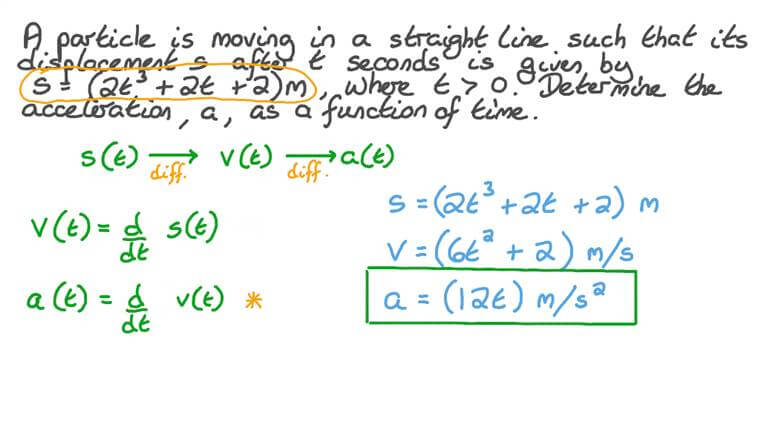 A particle is moving in a straight line such that its
displacement s after t seconds is given by
s = (2t³ + 2t + 2)m, where t > 0. Determine the
acceleration, a, as a function of time.
s(t) ⟶ v(t) ⟶ a(t)
diff. diff.
v(t) = d/dt s(t)
a(t) = d/dt v(t) *
s = (2t³ + 2t + 2) m
v = (6t² + 2) m/s
a = (12t) m/s²